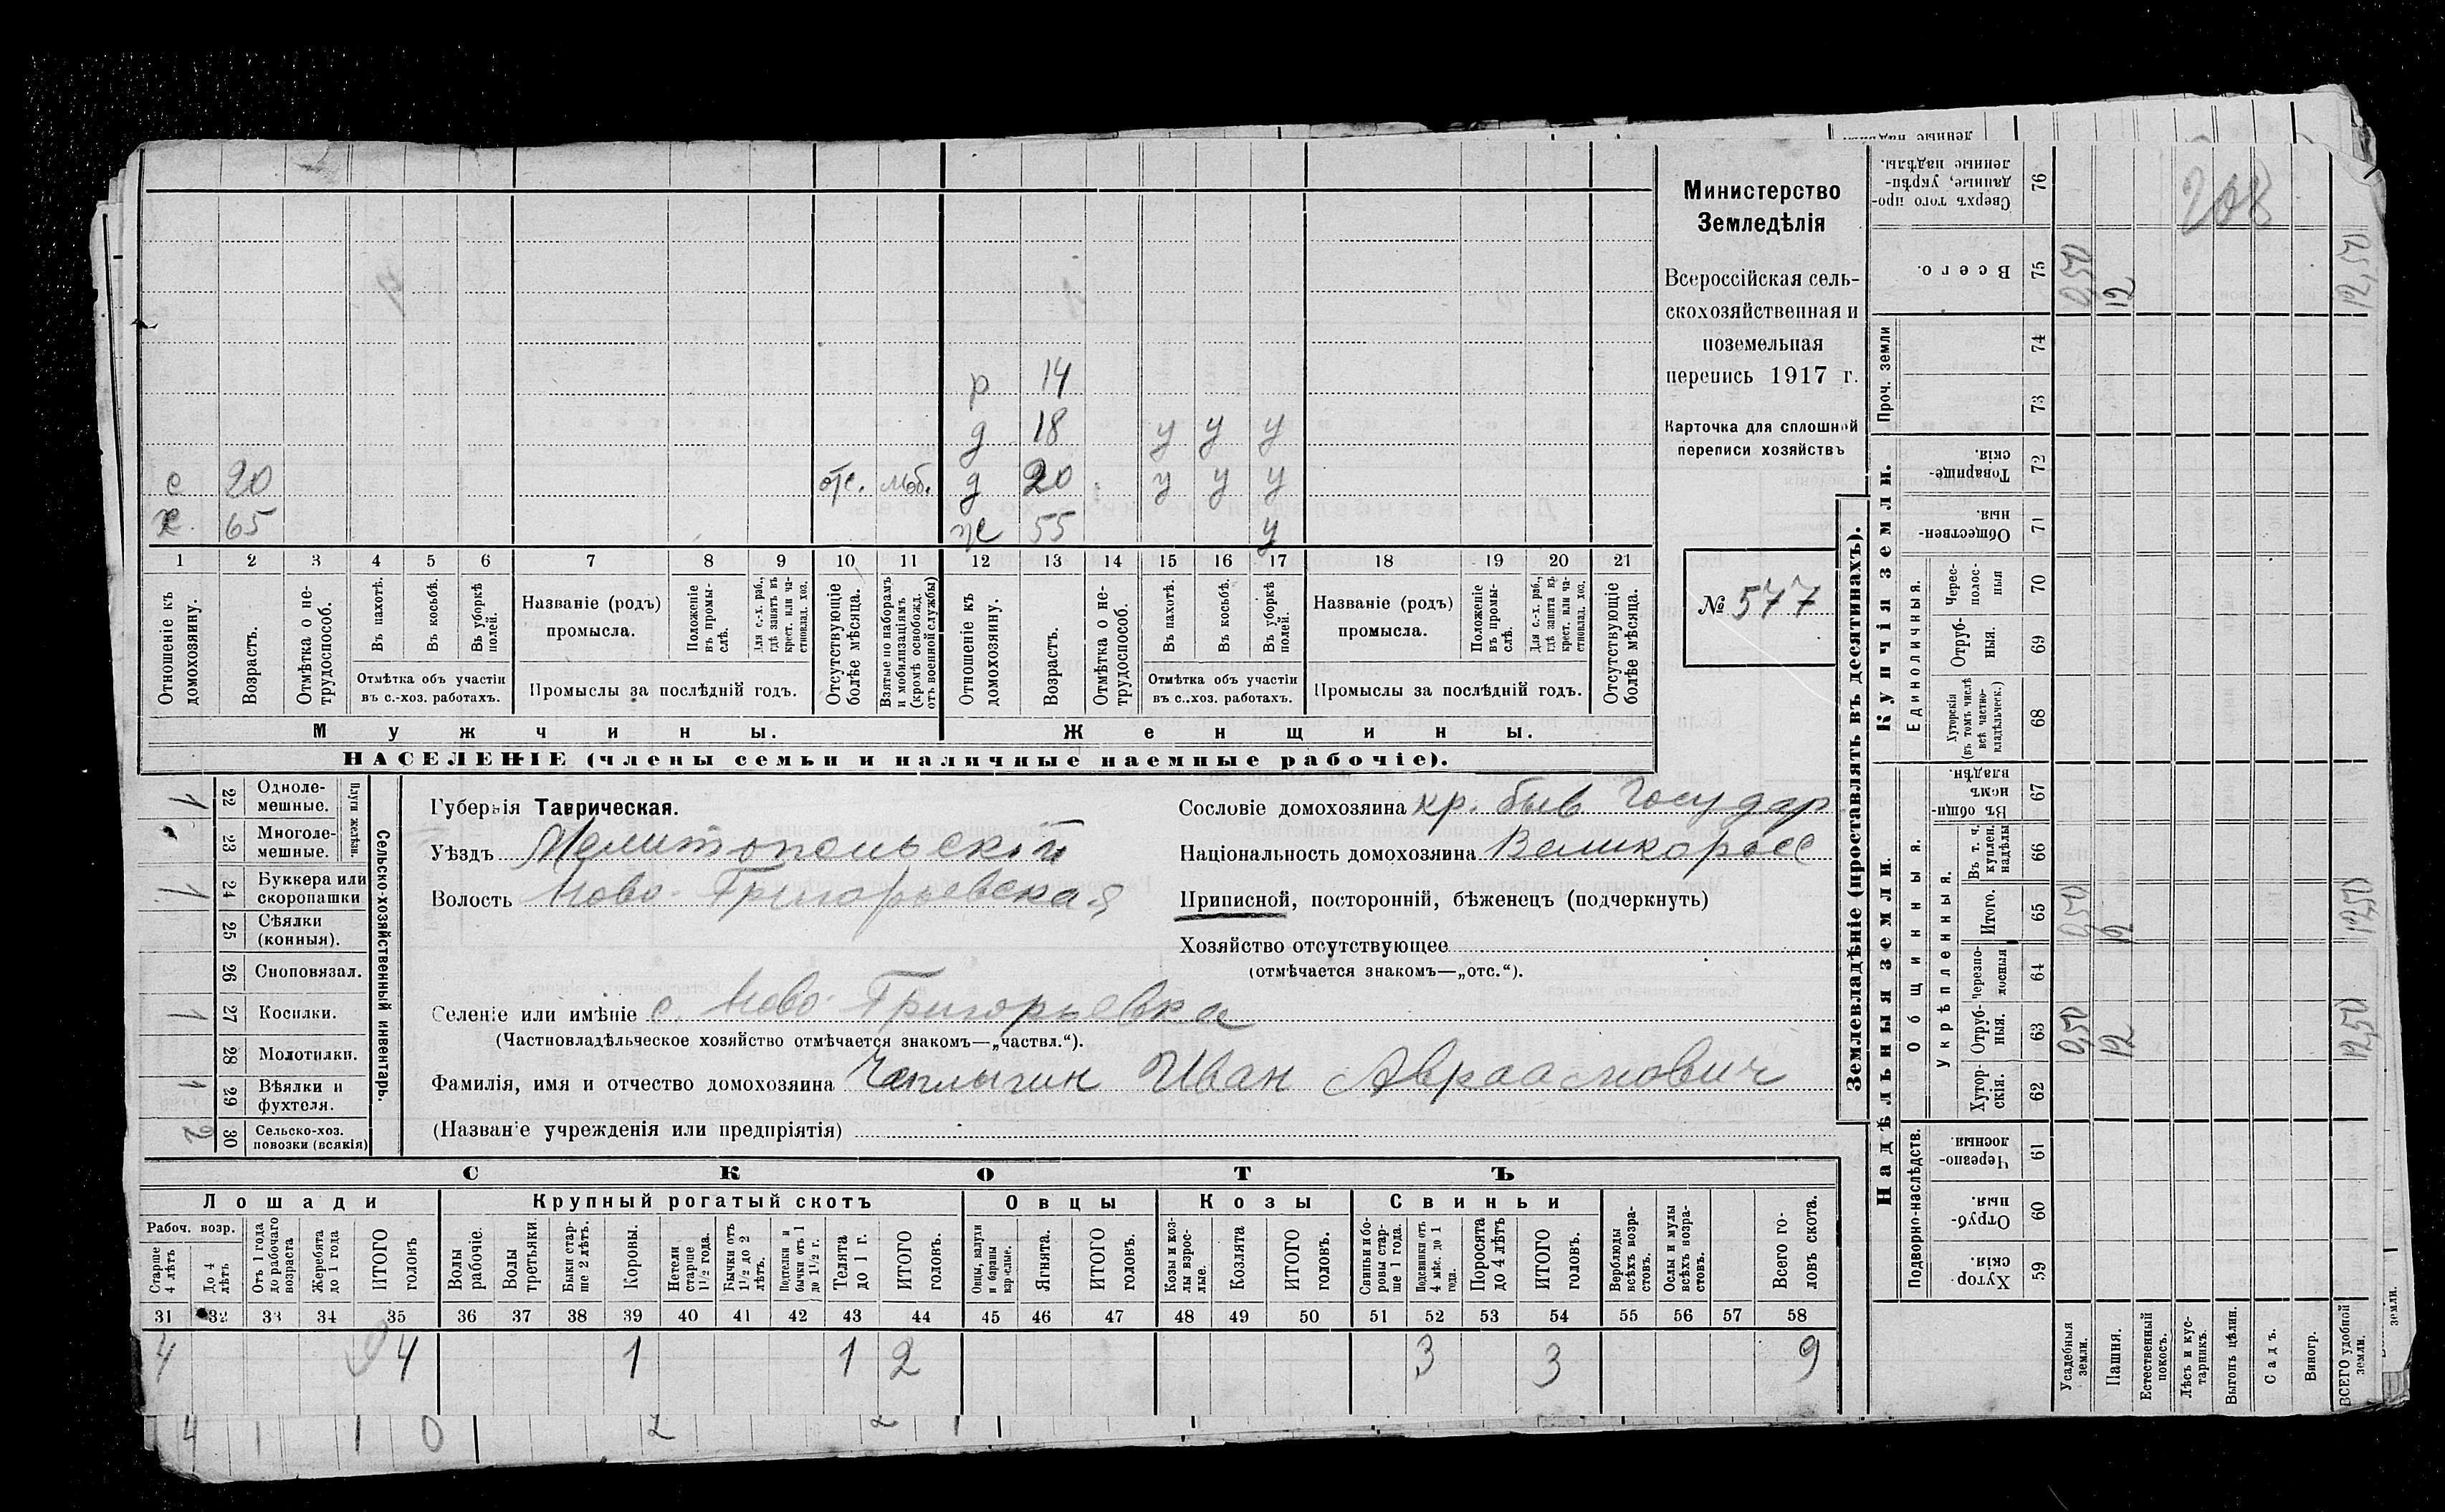 р 14
д 18 у у у
с 20 отс. моб. д 20 у у у
х 65 ж 55 у
1 2 3 4 5 6 7 8 9 10 11 12 13 14 15 16 17 18 19 20 21
Отношеніе къ домохозяину.
Возрастъ.
Отмѣтка о нетрудоспособ.
Въ пахотѣ.
Въ косьбѣ.
Въ уборкѣ полей.
Отмѣтка объ участіи
въ с.-хоз. работахъ.
Названіе (родъ)
промысла.
Положеніе въ промыслѣ.
Для с.-х. раб., гдѣ занятъ въ крест. или частновлад. хоз.
Промыслы за послѣдній годъ.
Отсутствующіе болѣе мѣсяца.
Взятые по наборамъ и мобилизаціямъ (кромѣ освобожд. отъ военной службы)
Отношеніе къ домохозяину.
Возрастъ.
Отмѣтка о нетрудоспособ.
Въ пахотѣ.
Въ косьбѣ.
Въ уборкѣ полей.
Отмѣтка объ участіи
въ с.-хоз. работахъ.
Названіе (родъ)
промысла.
Положеніе въ промыслѣ.
Для с.-х. раб., гдѣ занята въ крест. или частновлад. хоз.
Промыслы за послѣдній годъ.
Отсутствующіе болѣе мѣсяца.
Мужчины. Женщины.
НАСЕЛЕНІЕ (члены семьи и наличные наемные рабочіе).
Министерство
Земледѣлія
Всероссійская сель-
скохозяйственная и
поземельная
перепись 1917 г.
Карточка для сплошной
переписи хозяйствъ
№ 577
1 22 Однолемешные.
23 Многолемешные.
Плуги желѣзн.
1 24 Буккера или скоропашки
25 Сѣялки (конныя).
26 Сноповязал.
1 27 Косилки.
28 Молотилки.
1 29 Вѣялки и фухтеля.
2 30 Сельско-хоз. повозки (всякія)
Сельско-хозяйственный инвентарь.
Губернія Таврическая.
Уѣздъ Мелитопольскій
Волость Ново-Григорьевская
Сословіе домохозяина кр. быв Государ.
Національность домохозяина Великоросс
Приписной, посторонній, бѣженецъ (подчеркнуть)
Хозяйство отсутствующее
(отмѣчается знакомъ—„отс.“).
Селеніе или имѣніе с. Ново-Григорьевка
(Частновладѣльческое хозяйство отмѣчается знакомъ—„частвл.“).
Фамилія, имя и отчество домохозяина Чаплыгин Иван Авраамович
(Названіе учрежденія или предпріятія)
СКОТЪ
Лошади Крупный рогатый скотъ Овцы Козы Свиньи
Рабоч. возр.
Старше 4 лѣтъ
До 4 лѣтъ
Отъ 1 года до рабочаго возраста
Жеребята до 1 года
ИТОГО головъ
Волы рабочіе.
Волы третьяки
Быки старше 2 лѣтъ.
Коровы.
Нетели старше 1½ года.
Бычки отъ 1½ до 2 лѣтъ.
Подтелки и бычки отъ 1 до 1½ г.
Телята до 1 г.
ИТОГО головъ.
Овцы, валухи и бараны взрослые.
Ягнята.
ИТОГО головъ.
Козы и козлы взрослые.
Козлята
ИТОГО головъ.
Свиньи и боровы старше 1 года.
Подсвинки отъ 4 мѣс. до 1 года.
Поросята до 4 лѣтъ
ИТОГО головъ.
Верблюды всѣхъ возрастовъ.
Ослы и мулы всѣхъ возрастовъ.
Всего головъ скота.
31 32 33 34 35 36 37 38 39 40 41 42 43 44 45 46 47 48 49 50 51 52 53 54 55 56 57 58
4 4 1 1 2 3 3 9
4 1 1 0 2 2 1
Землевладѣніе (проставлять въ десятинахъ).
Надѣльныя земли. Купчія земли.
Подворно-наслѣдств.
Общинныя.
Укрѣпленныя.
Единоличныя.
Проч. земли
Хуторскія. 59
Отрубныя. 60
Черезполосныя 61
Хуторскія. 62
Отрубныя. 63
Черезполосныя 64
Итого. 65
Въ т. ч. куплен. надѣлы 66
Въ общинномъ владѣн. 67
Хуторскія (въ томъ числѣ всѣ частновладѣльческ.) 68
Отрубныя. 69
Чересполосныя 70
Общественныя. 71
Товарищескія. 72
73
74
Всего. 75
Сверхъ того проданные, укрѣпленные надѣлы. 76
Усадебныя земли. 0,50 0,50 0,50
Пашня. 12 12 12
Естественный покосъ.
Лѣсъ и кустарникъ.
Выгонъ цѣлин.
Садъ.
Виногр.
ВСЕГО удобной земли. 12,50 12,50 12,50
208